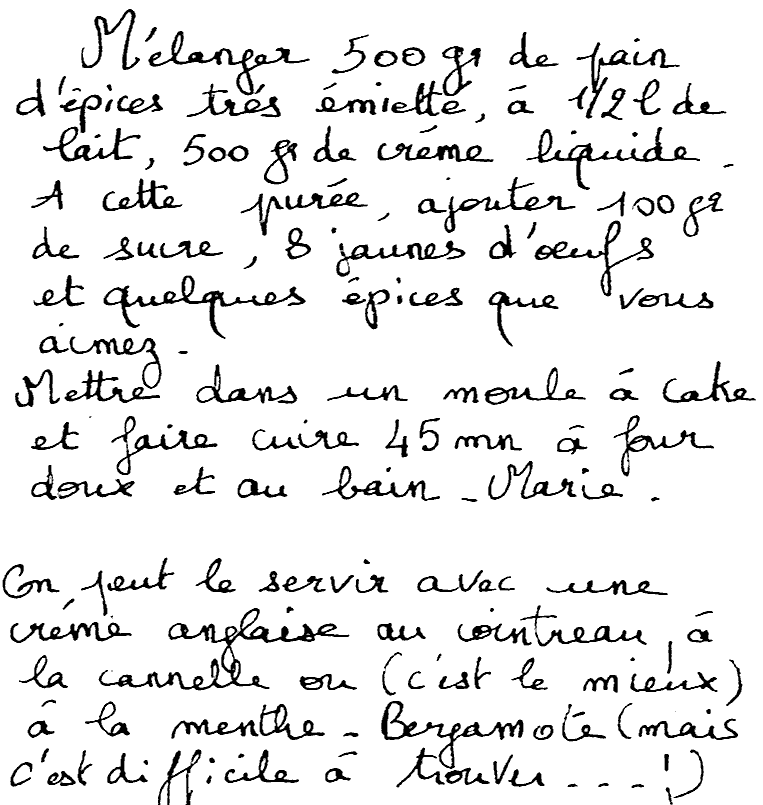 Mélanger 500 gr de pain
d'épices très émietté, à 1/2 l de
lait, 500 gr de crème liquide.
A cette purée, ajouter 100 gr
de sucre, 8 jaunes d'œufs
et quelques épices que vous
aimez.
Mettre dans un moule à cake
et faire cuire 45 mn à four
doux et au bain-Marie.
On peut le servir avec une
crème anglaise au cointreau, à
la cannelle ou (c'est le mieux)
à la menthe-Bergamote (mais
c'est difficile à trouver...!)